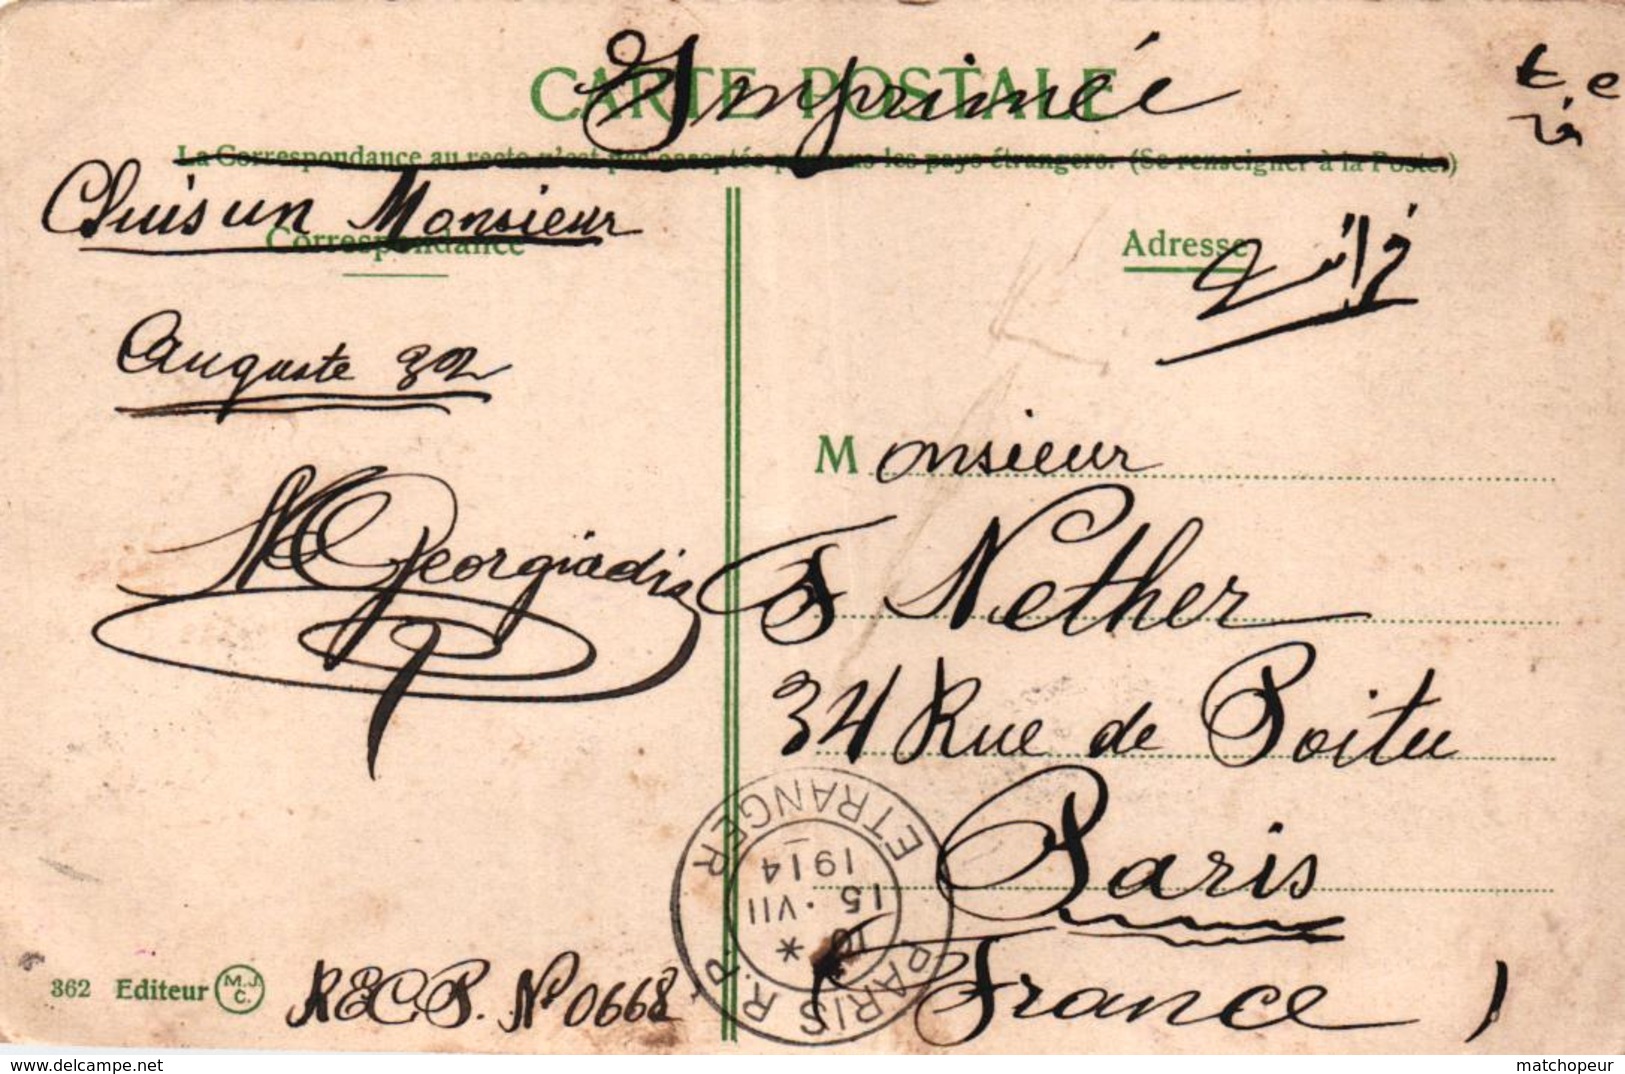 Imprimée
CARTE POSTALE
La Correspondance au recto n'est pas acceptée par tous les pays étrangers. (Se renseigner à la Poste.)
Monsieur
Correspondance
Adresse
فرانسه
Auguste 32
Georgiadis
Monsieur
Nether
34 Rue de Poitu
Paris
France
PARIS R.P.
ETRANGER
15 · VII
1914
362 Editeur M.J.C.
R.E.C.P. No 0668
matchopeur